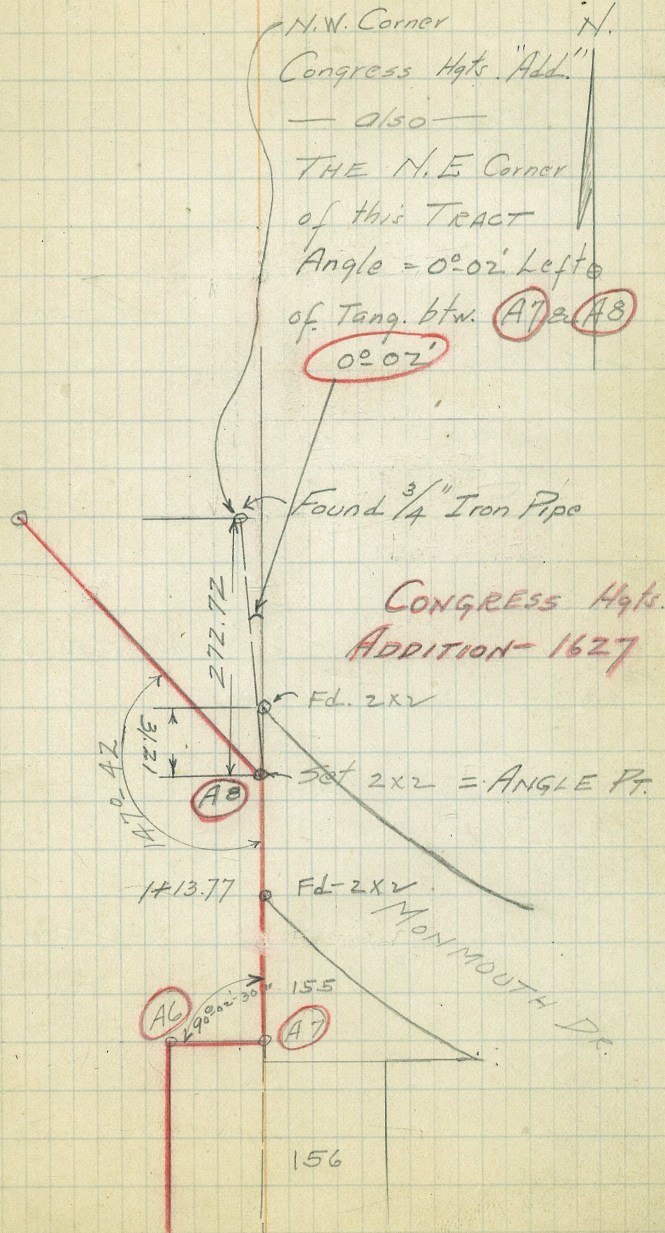 N.W. Corner
N.
Congress Hgts. "Add."
— also —
THE N.E Corner
of this TRACT
Angle = 0°-02' Left
of Tang. btw. A7 & A8
0°-02'
Found 3/4" Iron Pipe
272.72
CONGRESS Hgts.
ADDITION- 1627
Fd. 2x2
31.21
147°-42
Set 2x2 = ANGLE PT.
A8
1+13.77
Fd-2x2
MONMOUTH DR.
155
A6
90°-02'-30"
A7
156